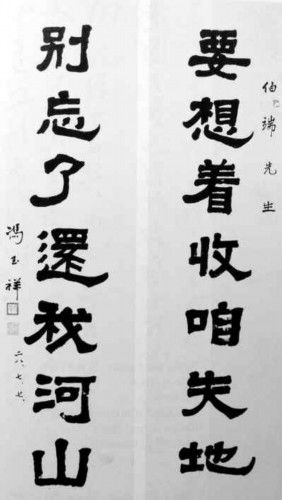 伯瑞先生
要想着收咱失地
别忘了還我河山
馮玉祥
二六、七、七、